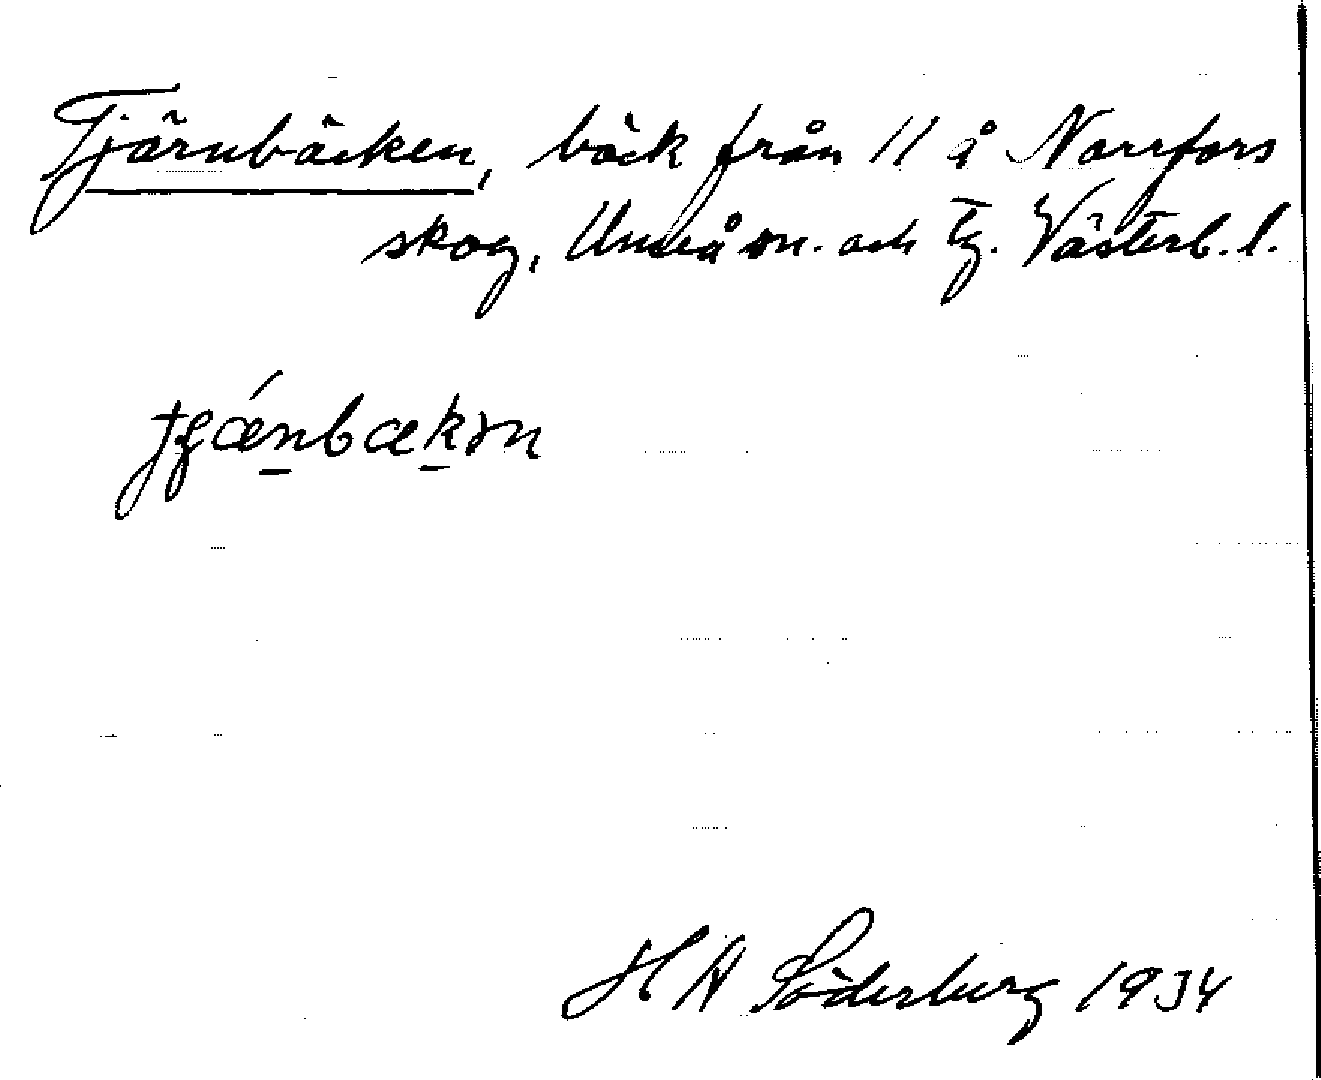 Tjärnbäcken, bäck från 11 å Norrfors
skog, Umeå sn. och tg. Västerb. l.
H A Söderberg 1934